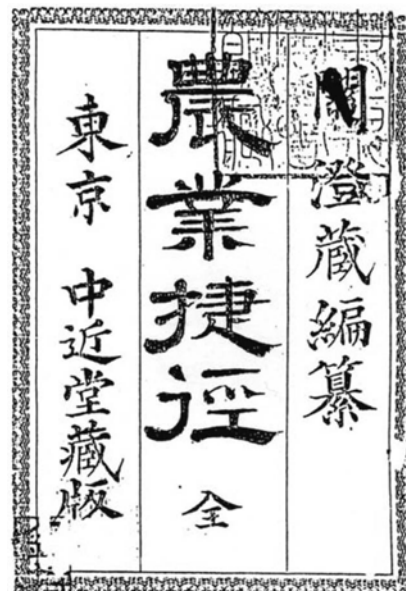 關澄蔵編纂
農業捷徑 全
東京 中近堂藏版